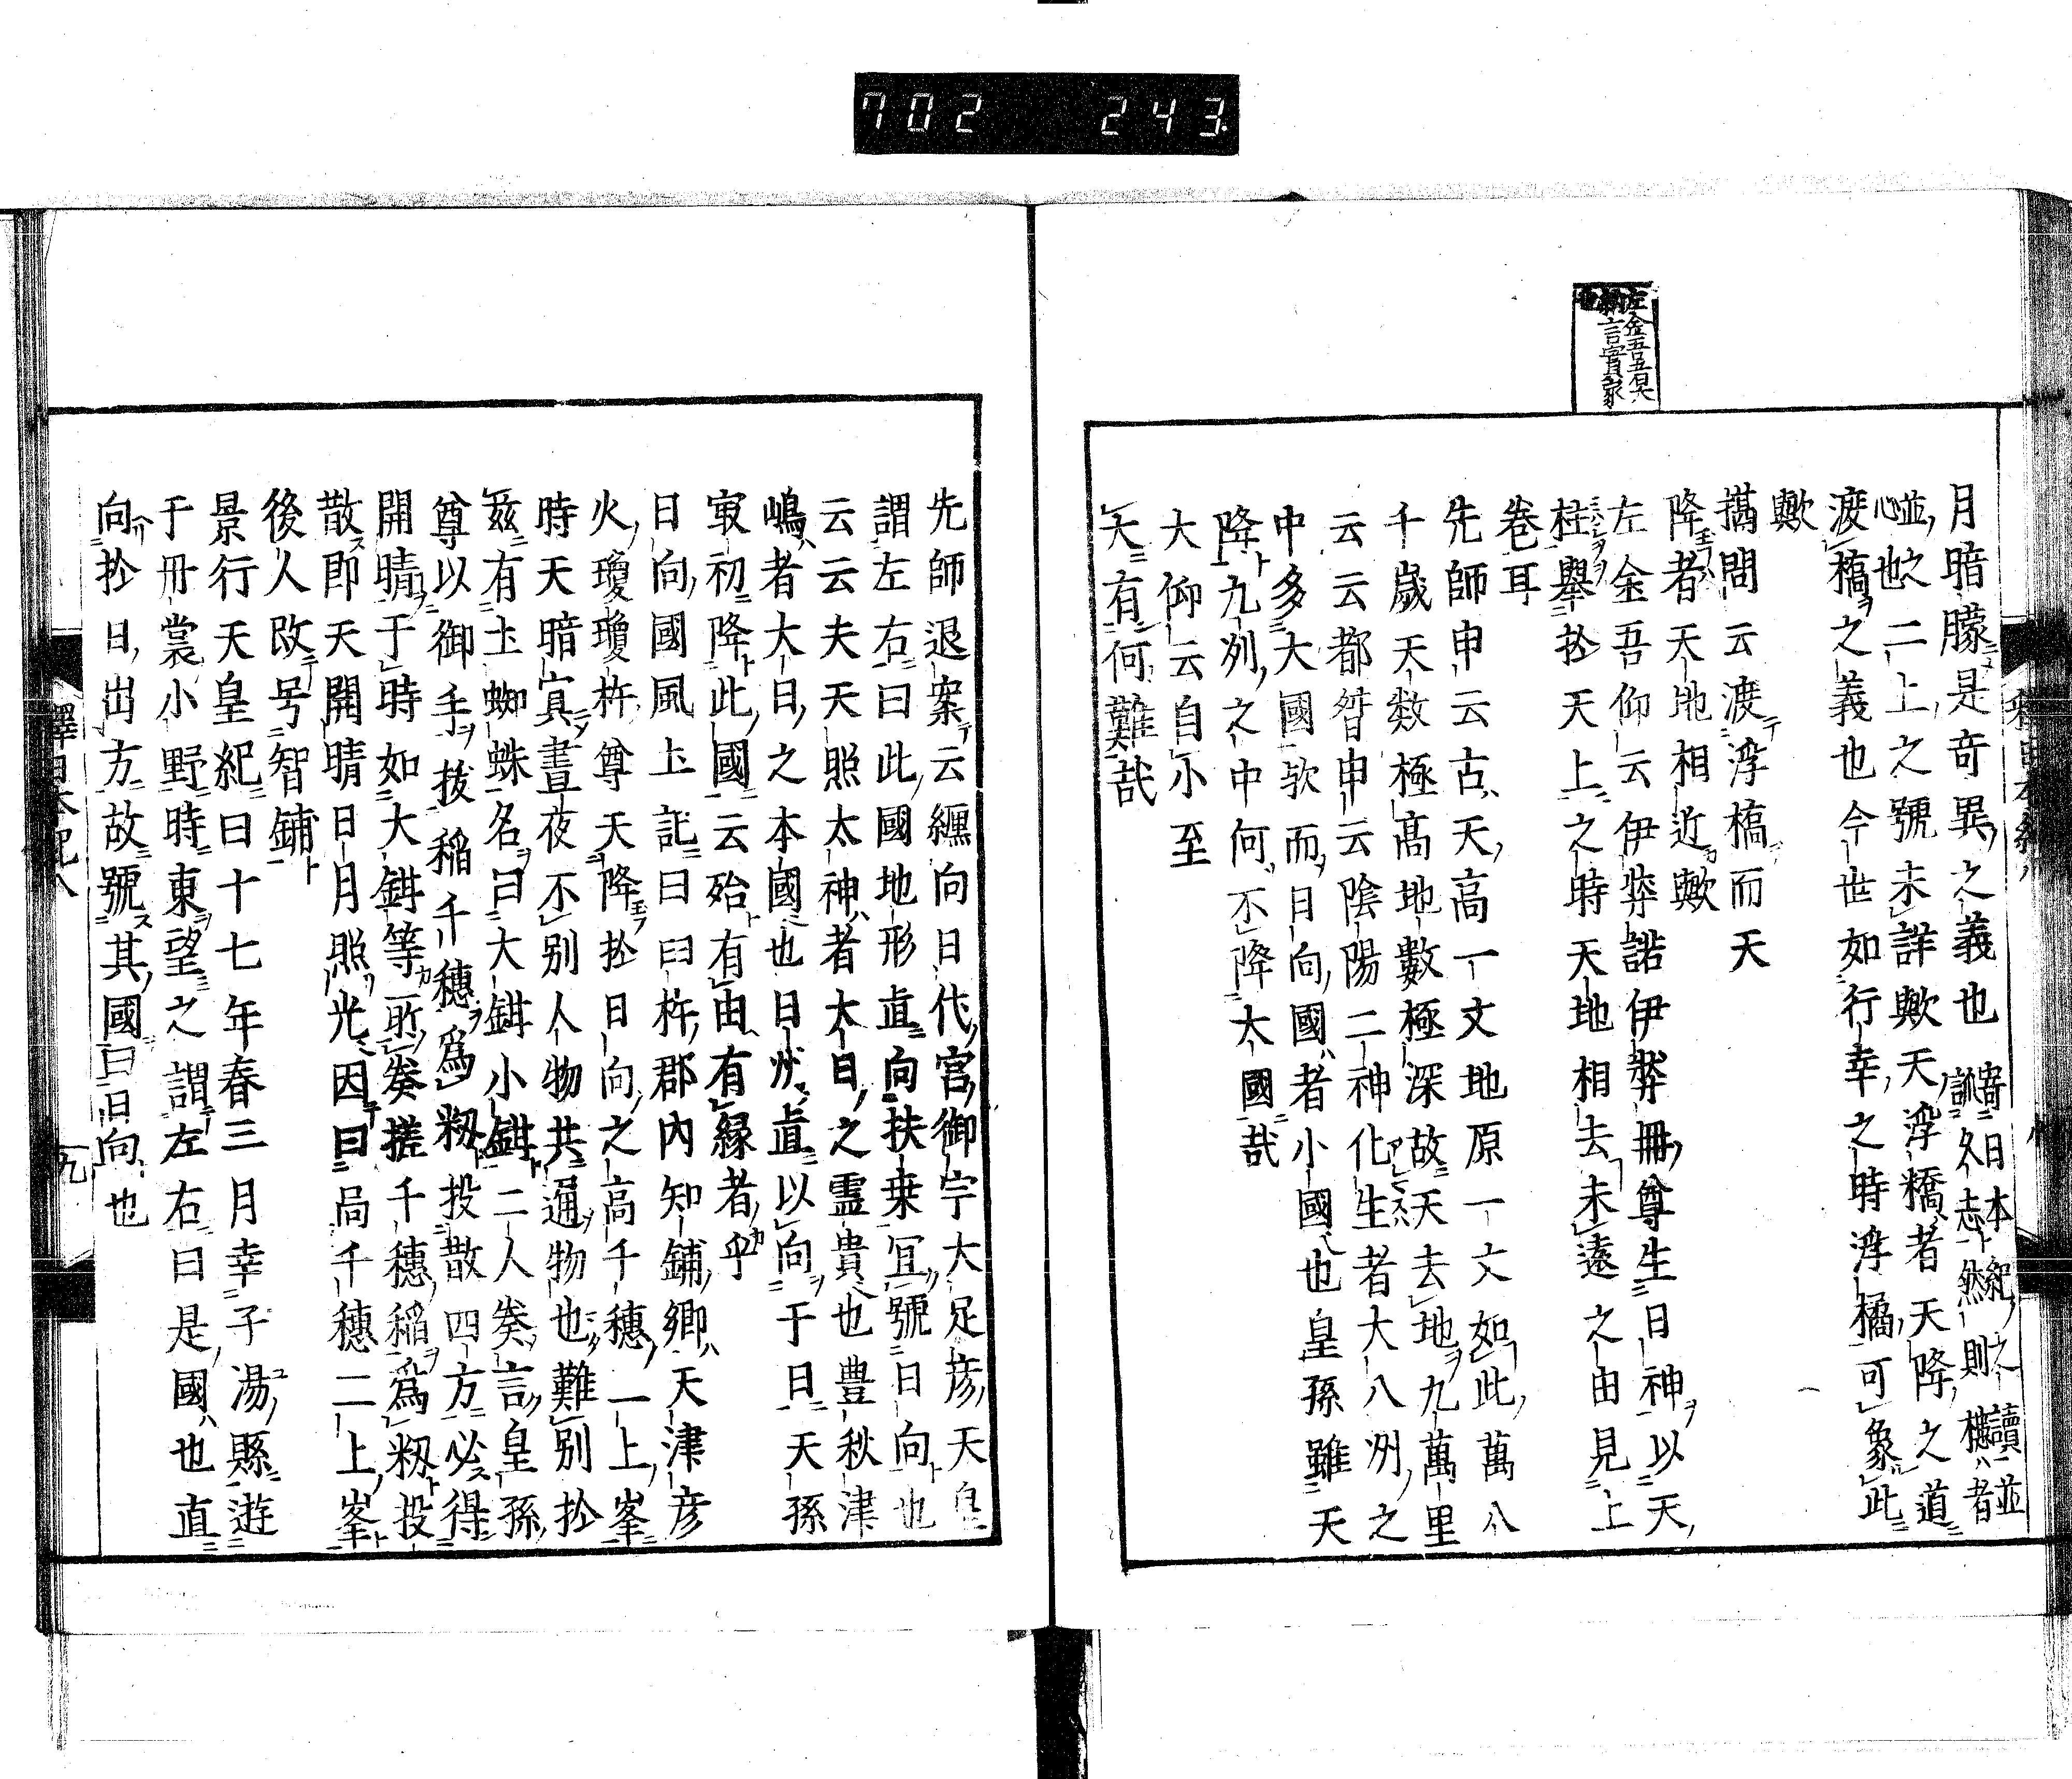 702 243
左金吾
言實
月暗朦是奇異之義也寄日本紀之讀並
訓久志然則樾者
並也二上之號未詳歟天浮橋者天降之道
心之
渡橋之義也今世如行幸之時浮橋可象此
歟
搆問云渡浮橋而天
降者天地相近歟
左金吾仰云伊弉諾伊弉冊尊生日神以天
柱擧於天上之時天地相去未遠之由見上
卷耳
先師申云古天高一丈地原一丈如此萬八
千歲天數極高地數極深故天去地九萬里
云云都督申云陰陽二神化生者大八洲之
中多大國欤而日向國者小國也皇孫雖天
降九州之中何不降大國哉
大仰云自小至
大有何難哉
先師退案云纏向日代宮御宇大足彥天皇
謂左右曰此國地形直向扶桒冝號日向也
云云夫天照太神者大日之霊貴也豊秋津
嶋者大日之本國也日州直以向于日天孫
㝡初降此國云殆有由有緣者乎
日向國風土記曰曰杵郡內知鋪鄉天津彥
火瓊瓊杵尊天降於日向之高千穗二上峯
時天暗冥晝夜不別人物共通物也難別於
茲有土蜘蛛名曰大鉗小鉗二人奏言皇孫
尊以御手拔稲千穗爲籾投散四方必得
開晴于時如大鉗等所奏搓千穗稲爲籾投
散即天開晴日月照光因曰高千穗二上峯
後人改号智鋪
景行天皇紀曰十七年春三月幸子湯縣遊
于冊裳小野時東望之謂左右曰是國也直
向於日出方故號其國曰日向也
釋日本紀八
九